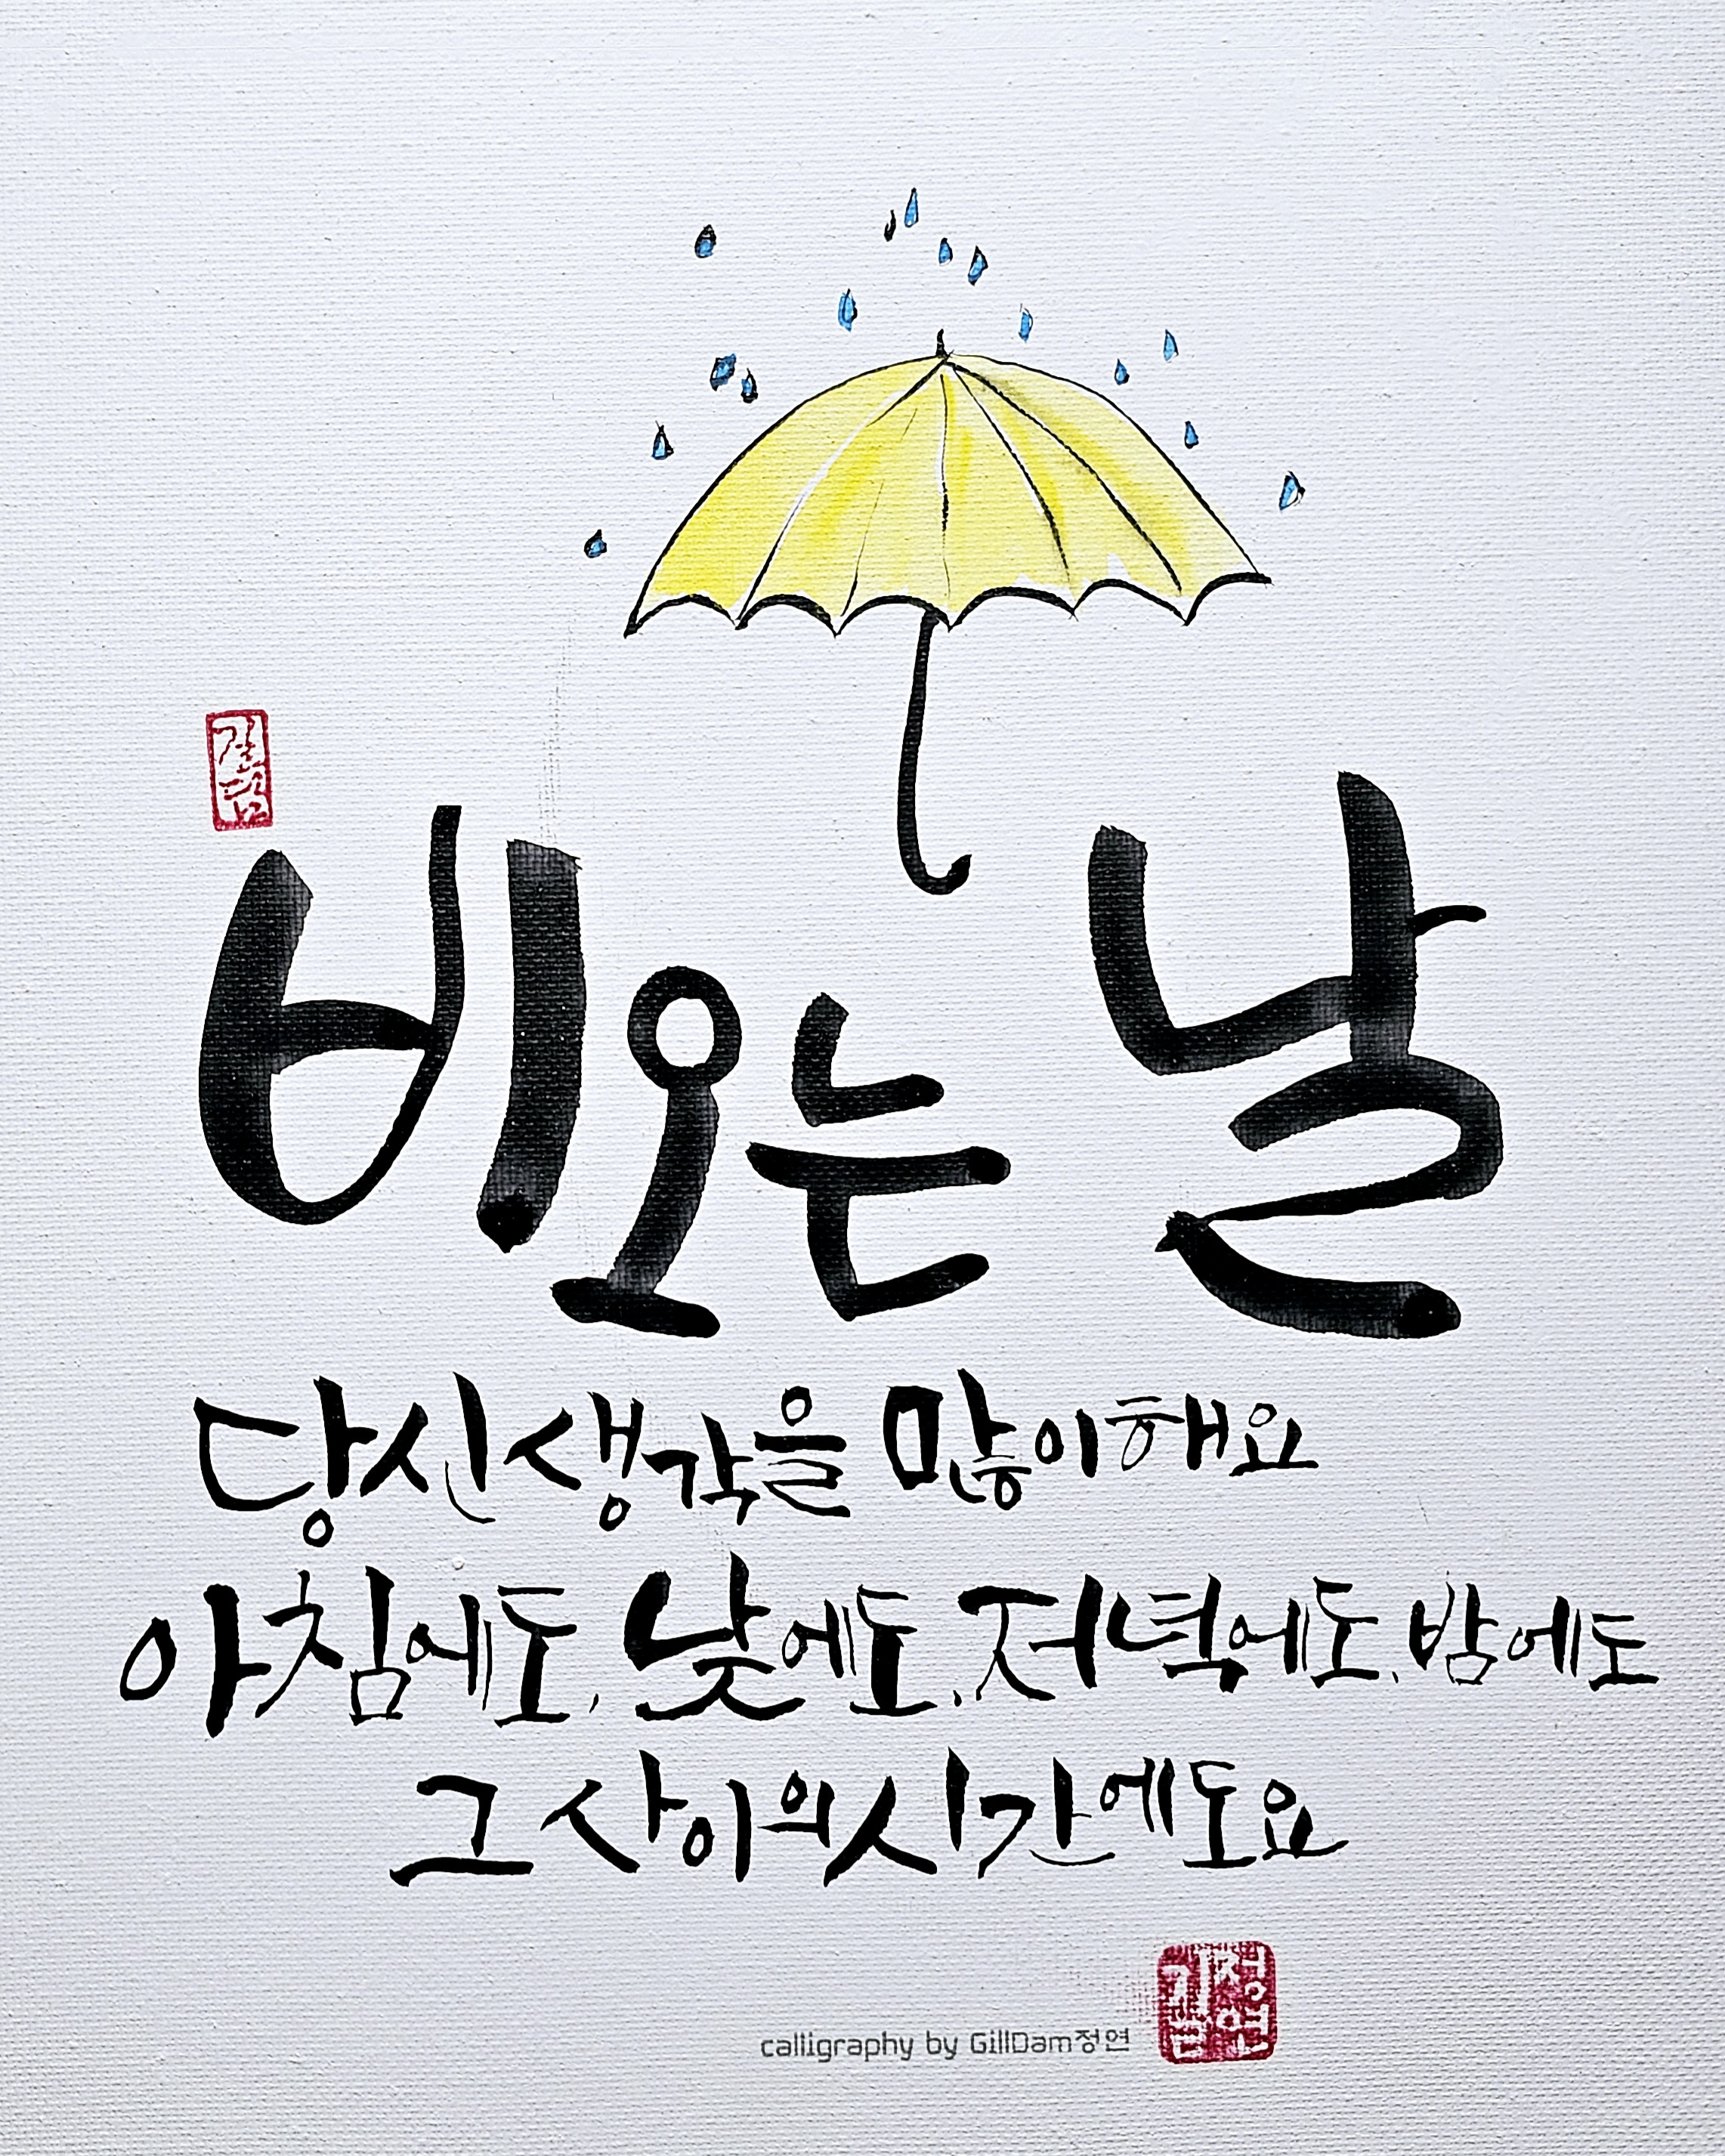 길담
비오는 날
당신 생각을 많이 해요
아침에도, 낮에도, 저녁에도, 밤에도
그 사이의 시간에도요
calligraphy by GillDam정연
정연